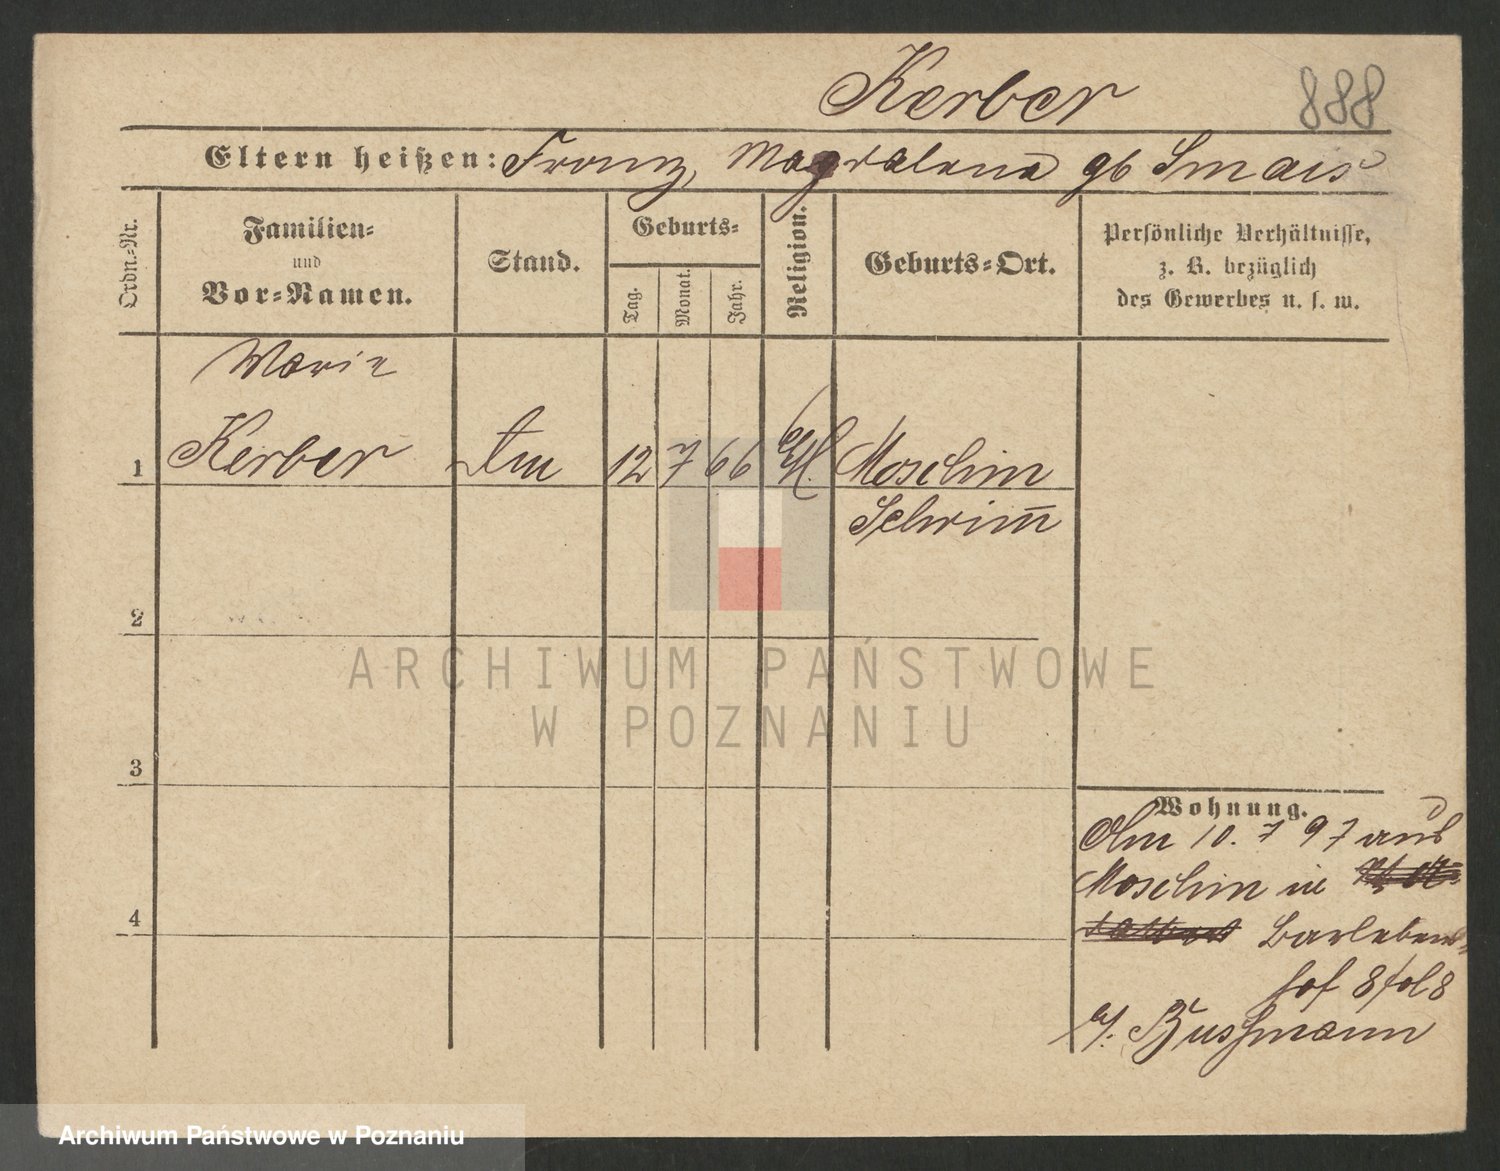 Kerber 888
Eltern heißen: Franz, Magdalena gb Smais
Ordn.=Nr.
Familien=
und
Vor=Namen.
Stand.
Geburts=
Tag.
Monat.
Jahr.
Religion.
Geburts=Ort.
Persönliche Verhältnisse,
z. B. bezüglich
des Gewerbes u. s. w.
Marie
1 Kerber 12 7 66 Moschin
Schrim̅
2
3
4
ARCHIWUM PAŃSTWOWE
W POZNANIU
Wohnung.
Am 10. 7 97 aus
Moschin in
Barleben=
hof 8 fol 8
b/. Bussmann
Archiwum Państwowe w Poznaniu